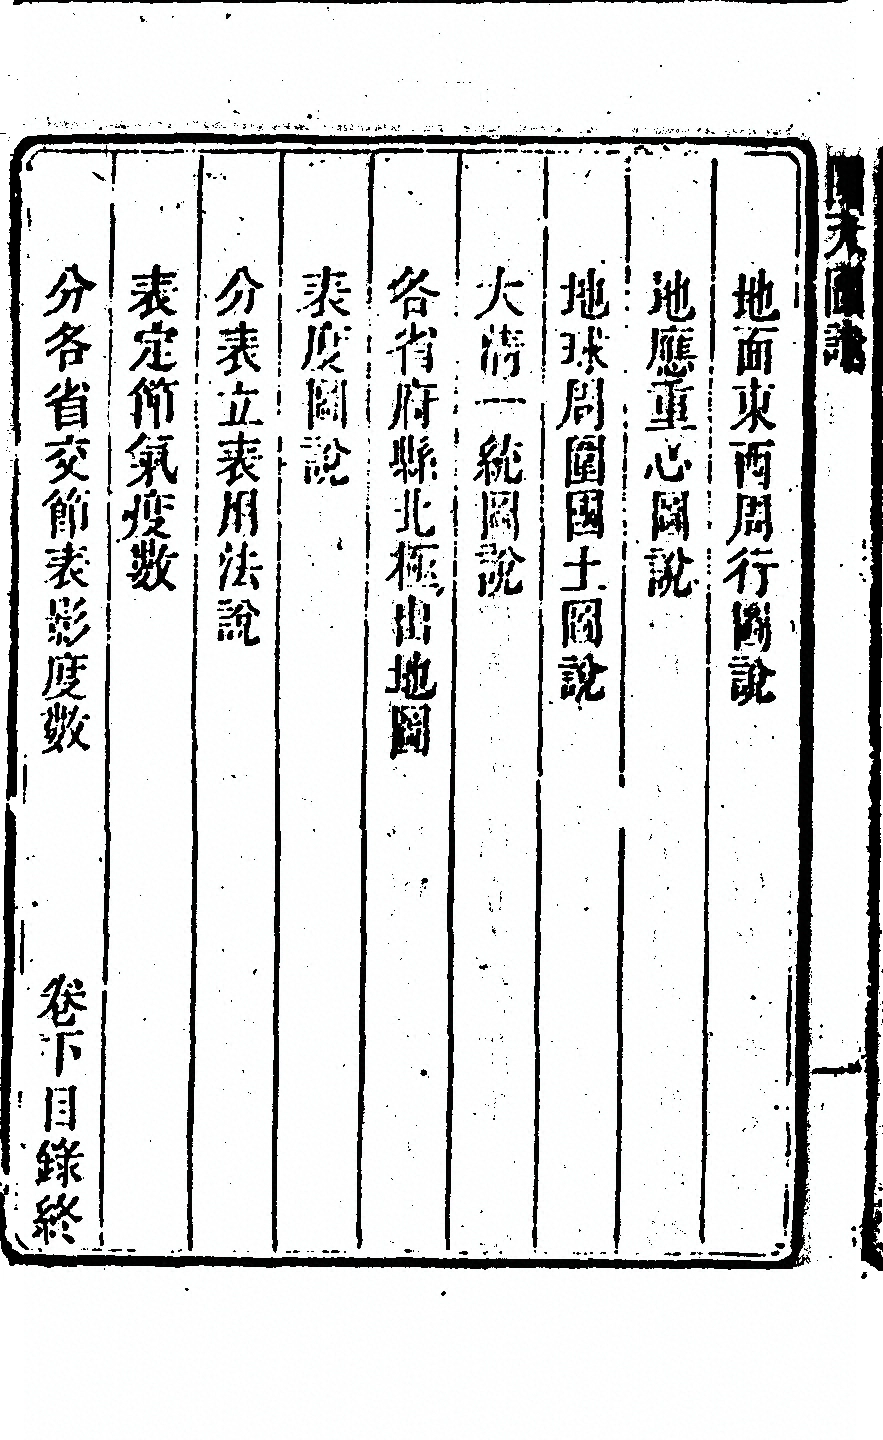 圜天圖說
地面東西周行圖說
地應重心圖說
地球周圍國土圖說
大清一統圖說
各省府縣北極出地圖
表度圖說
分表立表用法說
表定節氣度數
分各省交節表影度數
卷下目錄終
一